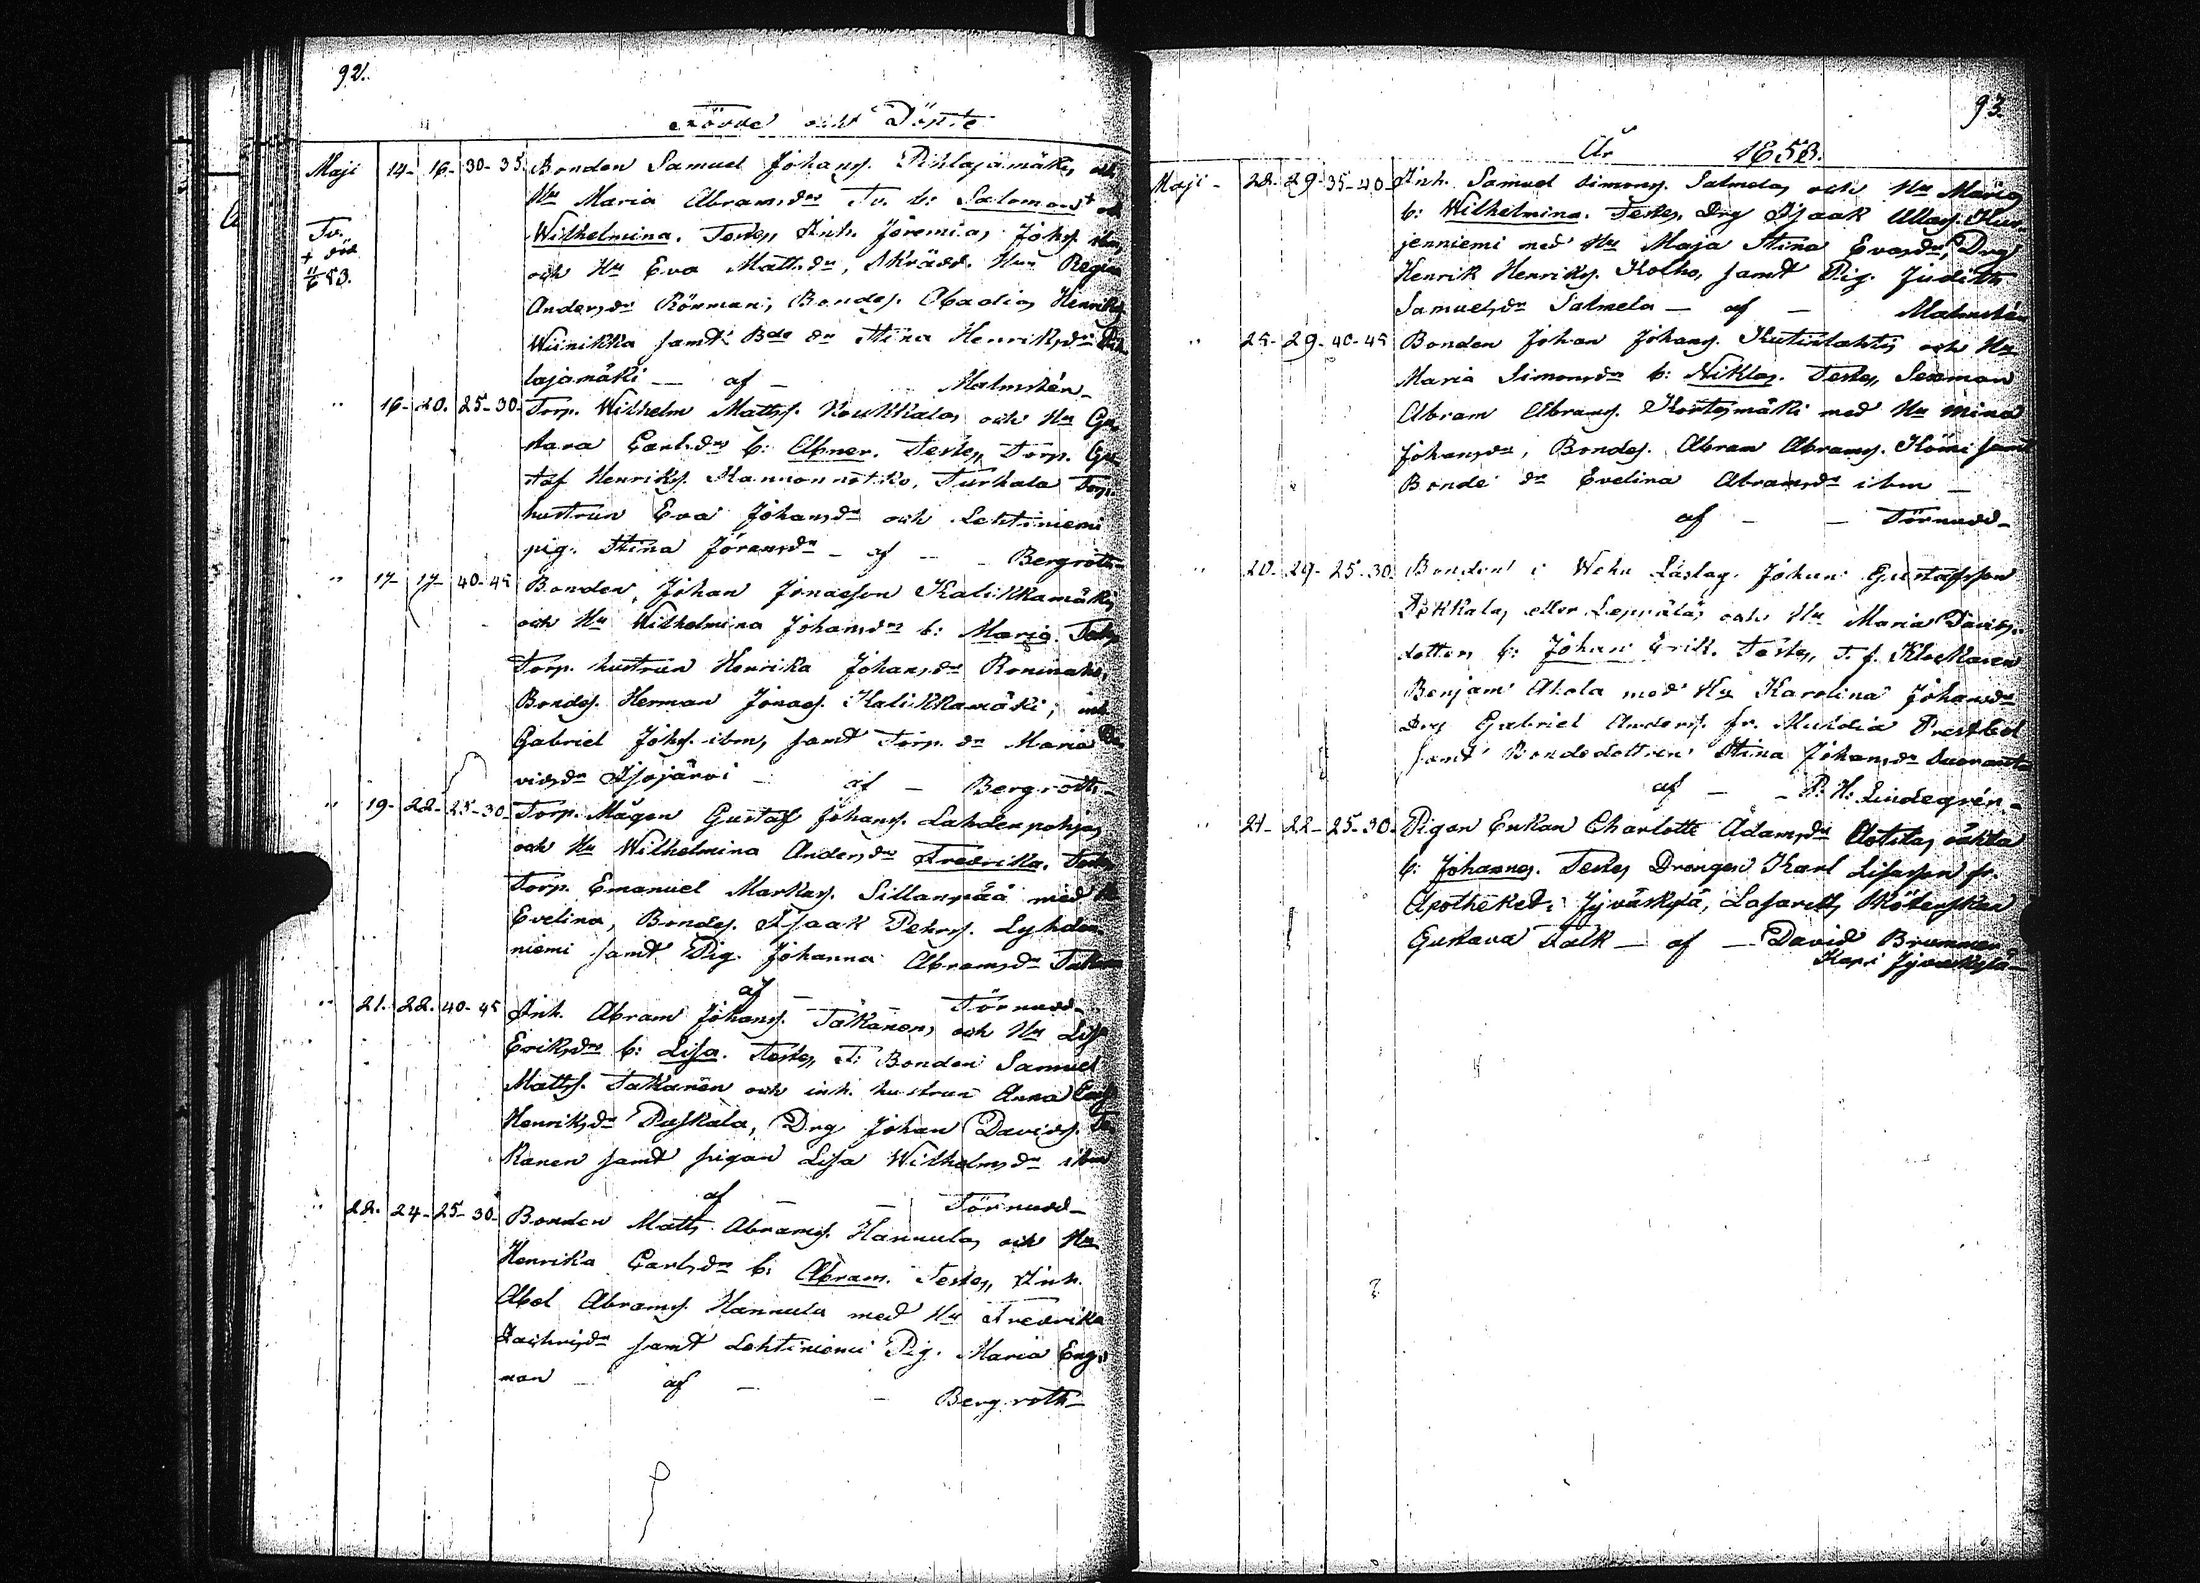 92.
Födde och Döpte
Maji 14- 16- 30-35. Bonden Samuel Johans. Pihlajamäki, och
Hu Maria Abramsdr Tv. b: Salomon + och
Tv. Wilhelmina. Testes, Inh. Jeremias Johs. ibm,
+ död och Hu Eva Mattsdr, Skrädd. Hu Regina
11/6 53. Andersdr Rönman, Bondes. Obadias Henriks.
Wiinikka samt Bde dr Stina Henriksdr Pih-
lajamäki — af — Malmstén-
" 16- 20. 25-30- Torp. Wilhelm Matts. Koukkala, och Hu Gu-
stava Carlsdr b: Abner. Testes, Torp. Gu-
staf Henriks. Kannonnotko, Turhala Torp.
hustrun Eva Johansdr och Lehtiniemi
pig. Stina Göransdr — af — Bergroth-
" 17- 17- 40-45 Bonden, Johan Jonasson Kalikkamäki,
och Hu Wilhelmina Johansdr b: Maria. Testes,
Torp. hustrun Henrika Johansdr
Bondes. Herman Jonas. Kalikkamäki, inh.
Gabriel Johs. ibm, samt Torp. dr Maria Da-
vidsdr Isojärvi — af — Bergroth-
" 19- 22- 25-30- Torp. Mågen Gustaf Johans. Lahdenpohja,
och Hu Wilhelmina Andersdr Fredrika. Testes,
Torp. Emanuel Markus. Sillanpää med Hu
Evelina, Bondes. Isaak Pehrs. Lyhden-
niemi samt Pig. Johanna Abramsdr
af — Törnudd-
" 21. 22. 40-45 Inh. Abram Johans. Takanen, och Hu Lisa
Eriksdr b: Lisa. Testes, T: Bonden Samuel
Matts. Takanen och inh. hustrun Anna
Henriksdr Paskala, Drg Johan Davids. Ta-
kanen samt pigan Lisa Wilhelmsdr ibm
af — — Törnudd-
" 22. 24- 25-30- Bonden Matts Abrams. Hannula, och Hu
Henrika Carlsdr b: Abram. Testes, Inh.
Abel Abrams. Hannula med Hu Fredrika
Zachrisdr samt Lehtiniemi Pig. Maria Eng-
man — af — — Bergroth-
93.
År 1853.
Maji- 22. 29- 35-40- Inh. Samuel Simons. Salmela, och Hu Maria,
b: Wilhelmina. Testes, Drg Isaak
jenniemi med Hu Maja Stina Evasdr, Drg
Henrik Henriks. Kolho, samt Pig. Judith
Samuelsdr Salmela — af — Malmstén
" 25- 29- 40-45 Bonden Johan Johans. Kutinlahti, och Hu
Maria Simonsdr b: Niklas. Testes, Sexman
Abram Abrams. Kortesmäki med Hu Mina
Johansdr, Bondes. Abram Abrams. Kömi samt
Bonde dr Evelina Abramsdr ibm —
af — — Törnudd-
" 20- 29- 25-30. Bonden i Wehn Läslag. Johan Gustafsson
eller Leppälä, och Hu Maria Davids-
dotter, b: Johan Erik. Testes, T. f. Klockaren
Benjam Ahola med Hu Karolina Johansdr
Drg Gabriel Anders. fr. Muldia Prestbol
samt Bondedottren Stina Johansdr
af — — P. H: Lindegrén-
" 21- 22- 25-30. Pigan Enkan Charlotte Adamsdr oäkta
b: Johannes. Testes Drengen Karl fr.
Apotheket i Jyväskylä, Lasaretts Sköterskan
Gustava Falk — af — David Brummer
Kapi Jyväskylä-